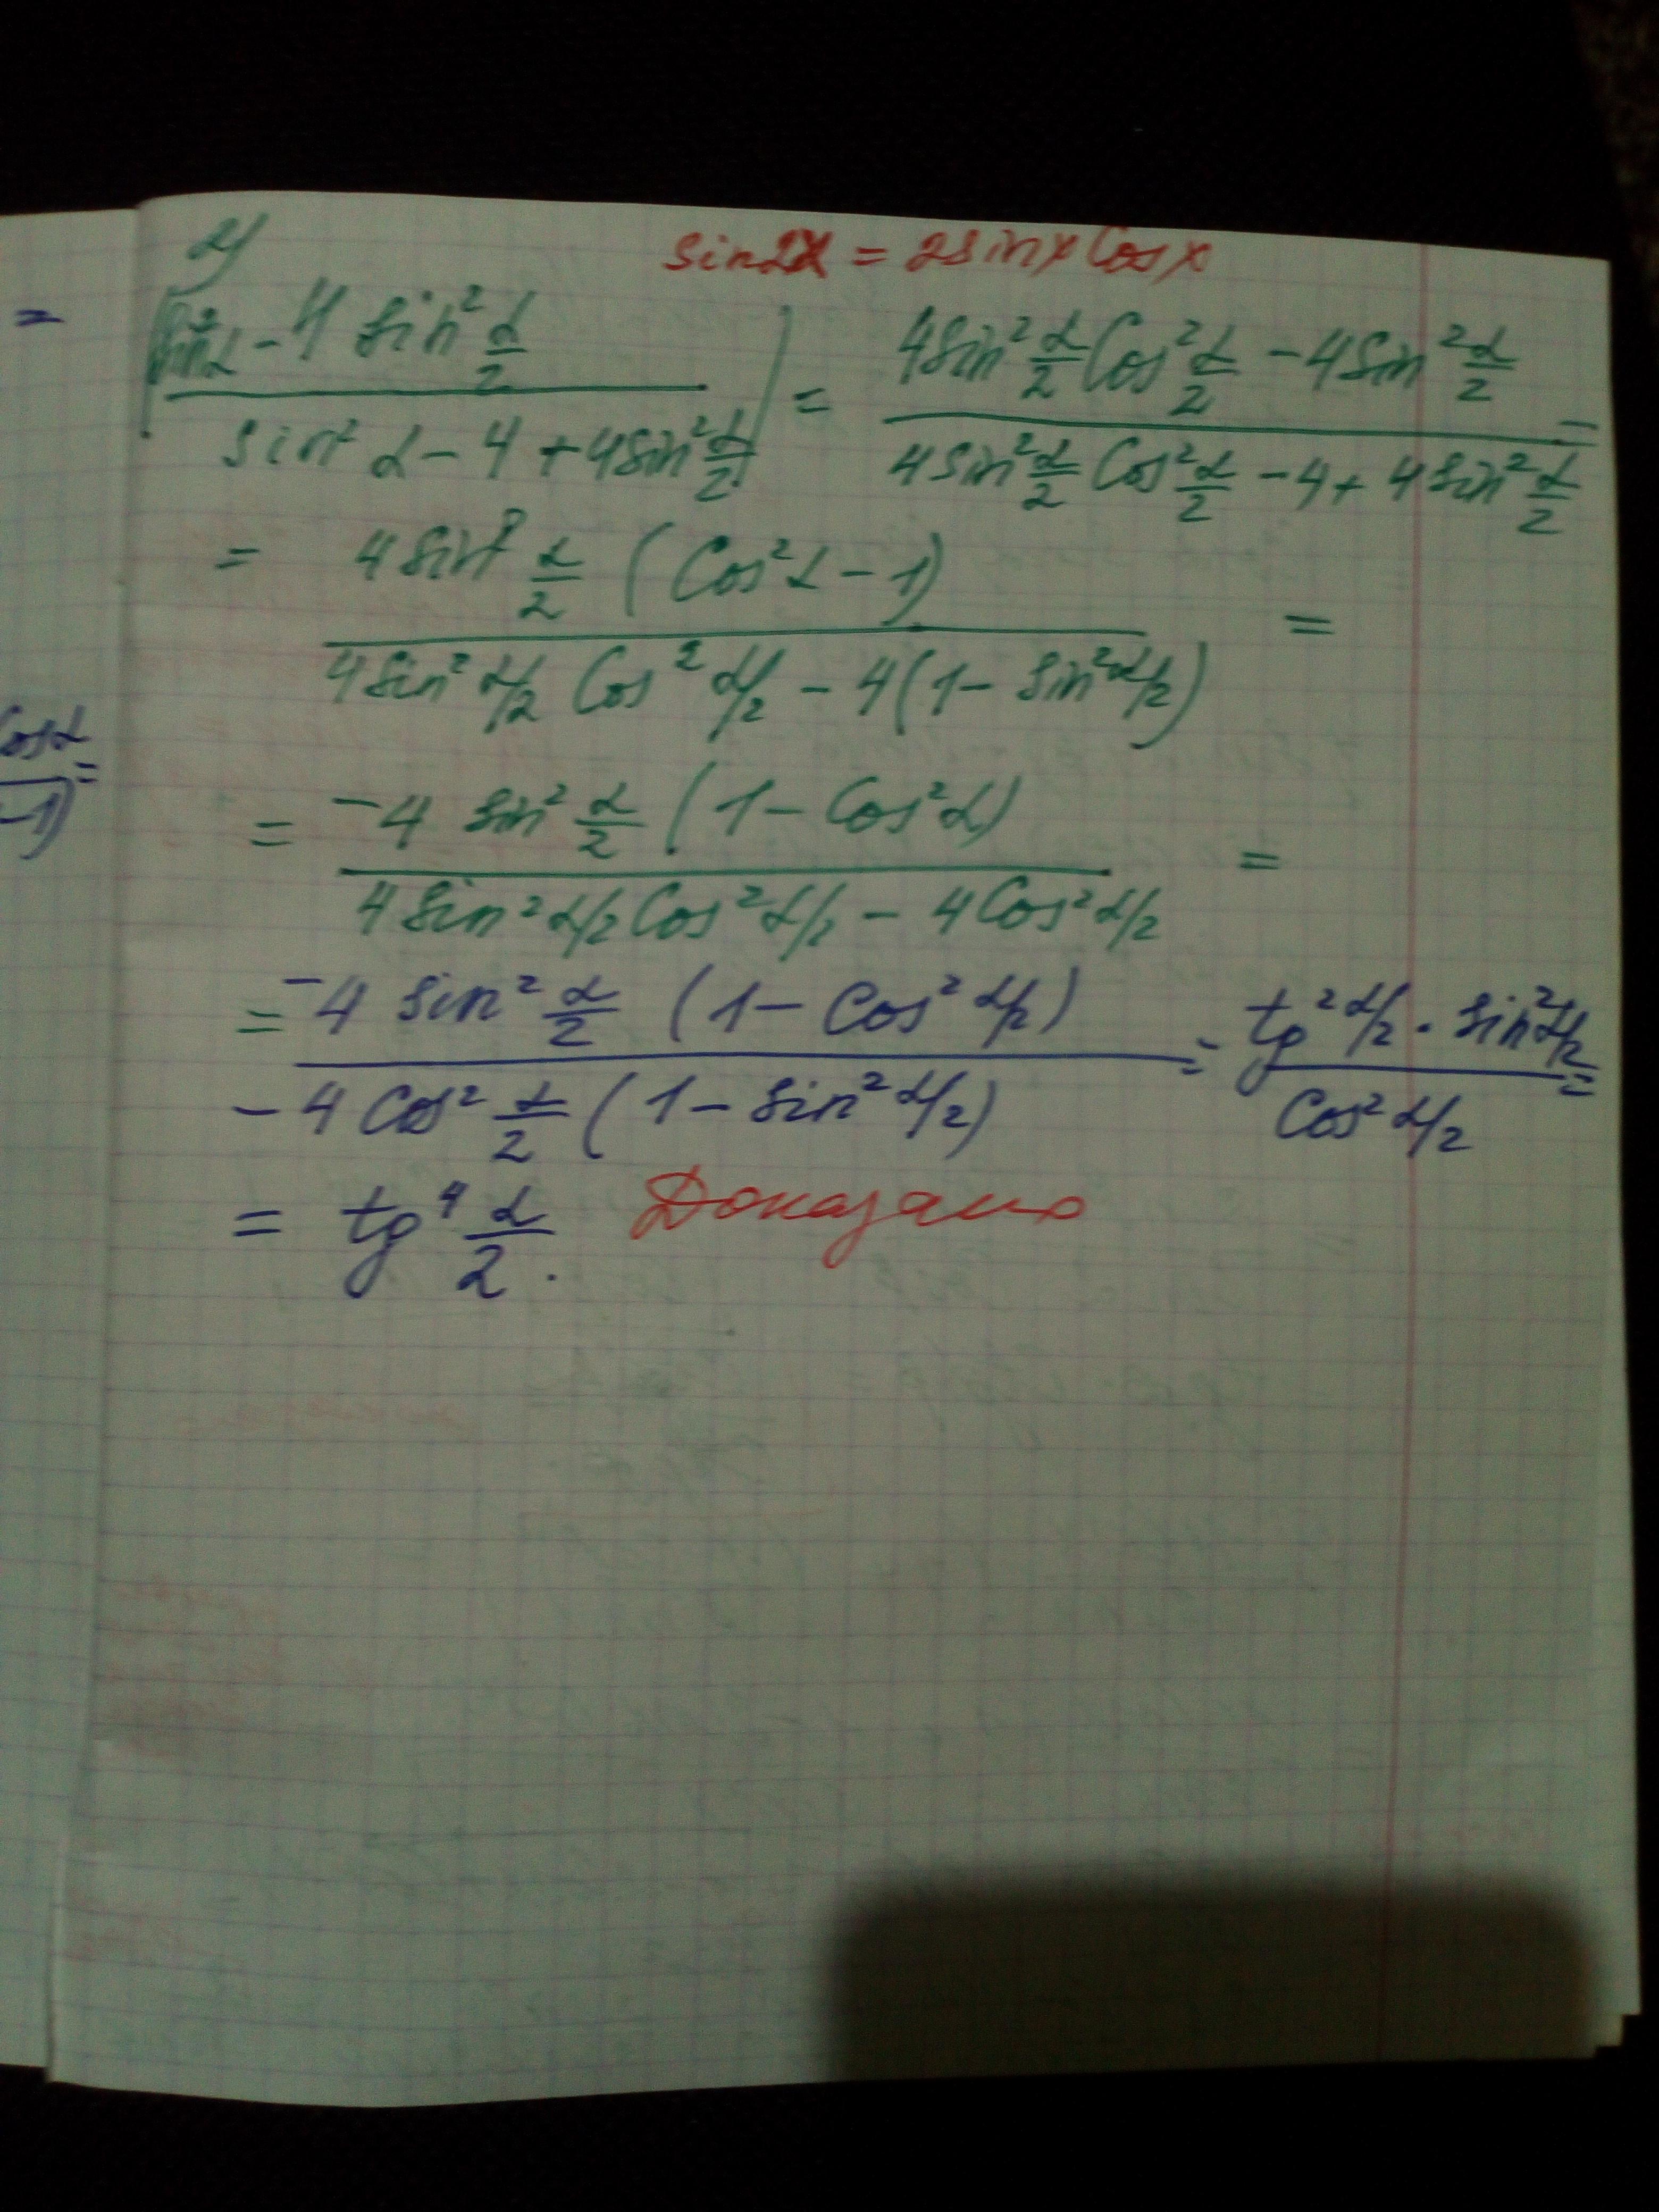 2)
sin2x = 2sinx Cosx
=
(sin²α - 4 sin² α/2) / (sin² α - 4 + 4sin² α/2) = (4sin² α/2 Cos² α/2 - 4sin² α/2) / (4sin² α/2 Cos² α/2 - 4 + 4sin² α/2) =
= (4sin² α/2 (Cos²α - 1)) / (4sin² α/2 Cos² α/2 - 4(1 - sin² α/2)) =
Cosα
-1) =
= (-4 sin² α/2 (1 - Cos²α)) / (4sin² α/2 Cos² α/2 - 4Cos² α/2) =
= (-4 sin² α/2 (1 - Cos² α/2)) / (-4 Cos² α/2 (1 - sin² α/2)) = (tg² α/2 · sin² α/2) / (Cos² α/2) =
= tg⁴ α/2. Доказано